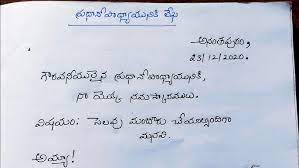 ప్రధానోపాధ్యాయునికి లేఖ
అనంతపురం,
23/12/2020.
గౌరవనీయులైన ప్రధానోపాధ్యాయునికి,
నా యొక్క నమస్కారములు.
విషయం: సెలవు మంజూరు చేయాల్సిందిగా
మనవి.
అయ్యా!